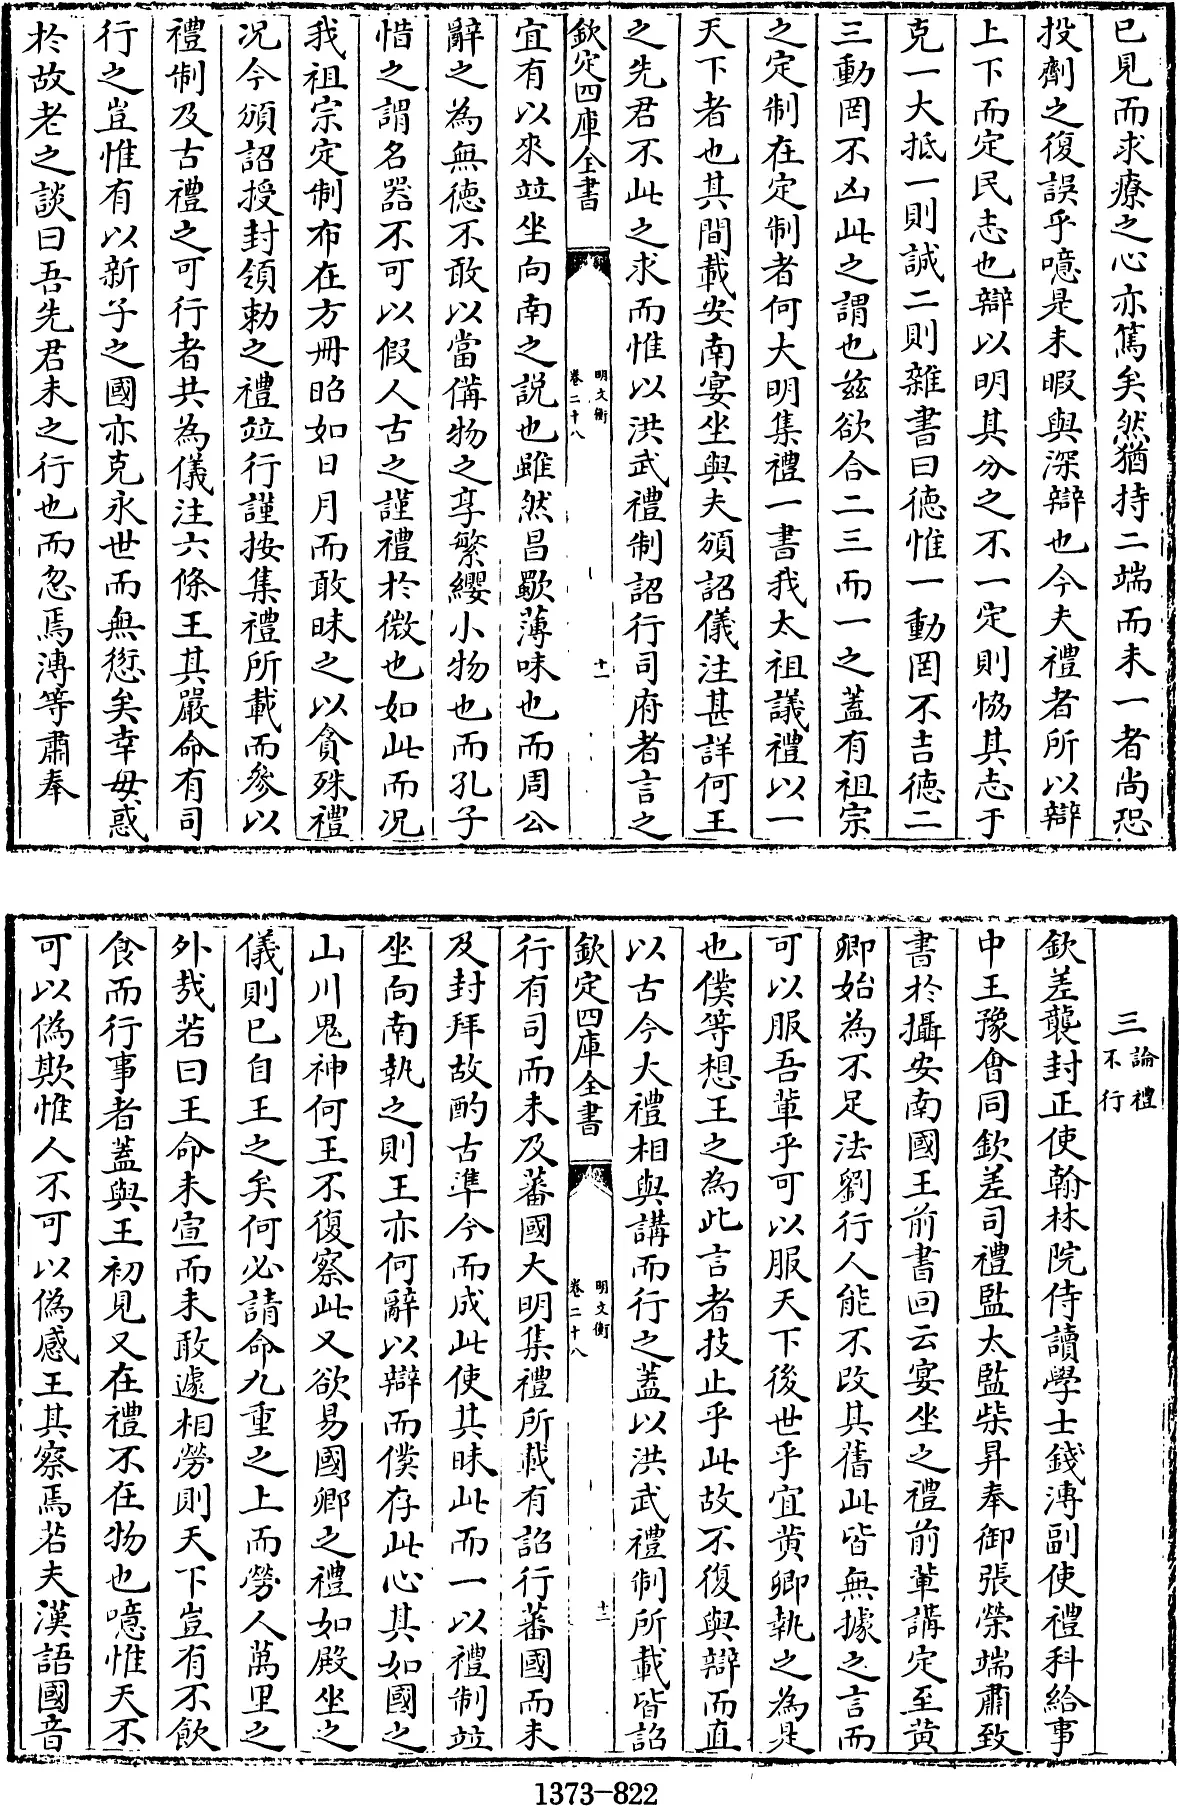 已見而求療之心亦篤矣然猶持二端而未一者尚恐
投劑之復誤乎噫是未暇與深辯也今夫禮者所以辯
上下而定民志也辯以明其分之不一定則恊其志于
克一大抵一則誠二則雜書曰德惟一動罔不吉德二
三動罔不凶此之謂也兹欲合二三而一之葢有祖宗
之定制在定制者何大明集禮一書我太祖議禮以一
天下者也其間載安南宴坐與夫頒詔儀注甚詳何王
之先君不此之求而惟以洪武禮制詔行司府者言之
欽定四庫全書
明文衡
卷二十八
十一
宜有以來竝坐向南之說也雖然昌歜薄味也而周公
辭之為無德不敢以當備物之享繁纓小物也而孔子
惜之謂名器不可以假人古之謹禮於微也如此而况
我祖宗定制布在方冊昭如日月而敢昧之以貪殊禮
况今頒詔授封領勅之禮竝行謹按集禮所載而參以
禮制及古禮之可行者共為儀注六條王其嚴命有司
行之豈惟有以新子之國亦克永世而無愆矣幸毋惑
於故老之談曰吾先君未之行也而忽焉溥等肅奉
三論禮不行
欽差襲封正使翰林院侍讀學士錢溥副使禮科給事
中王豫會同欽差司禮監太監柴昇奉御張榮端肅致
書於攝安南國王前書回云宴坐之禮前輩講定至黃
卿始為不足法劉行人能不改其舊此皆無據之言而
可以服吾輩乎可以服天下後世乎宜黃卿執之為是
也僕等想王之為此言者技止乎此故不復與辯而直
以古今大禮相與講而行之葢以洪武禮制所載皆詔
欽定四庫全書
明文衡
卷二十八
十二
行有司而未及蕃國大明集禮所載有詔行蕃國而未
及封拜故酌古準今而成此使其昧此而一以禮制竝
坐向南執之則王亦何辭以辯而僕存此心其如國之
山川鬼神何王不復察此又欲易國卿之禮如殿坐之
儀則已自王之矣何必請命九重之上而勞人萬里之
外哉若曰王命未宣而未敢遽相勞則天下豈有不飲
食而行事者葢與王初見又在禮不在物也噫惟天不
可以偽欺惟人不可以偽感王其察焉若夫漢語國音
1373-822